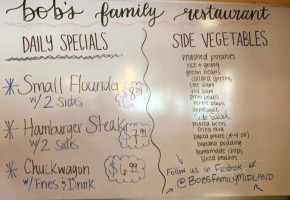 bob's family restaurant
DAILY SPECIALS
* Small Flounder
w/ 2 Sides
8.99
* Hamburger Steak
w/ 2 Sides
$7.99
* Chuckwagon
w/ Fries & Drink
$6.99
SIDE VEGETABLES
mashed potatoes
rice + gravy
green beans
collard greens
cole slaw
red slaw
pinto beans
applesauce
Side Salad
pickled beets
fried okra
baked potato
banana pudding
homemade chips
sliced peaches
Follow us on Facebook
@BOBSFAMILYMIDLAND